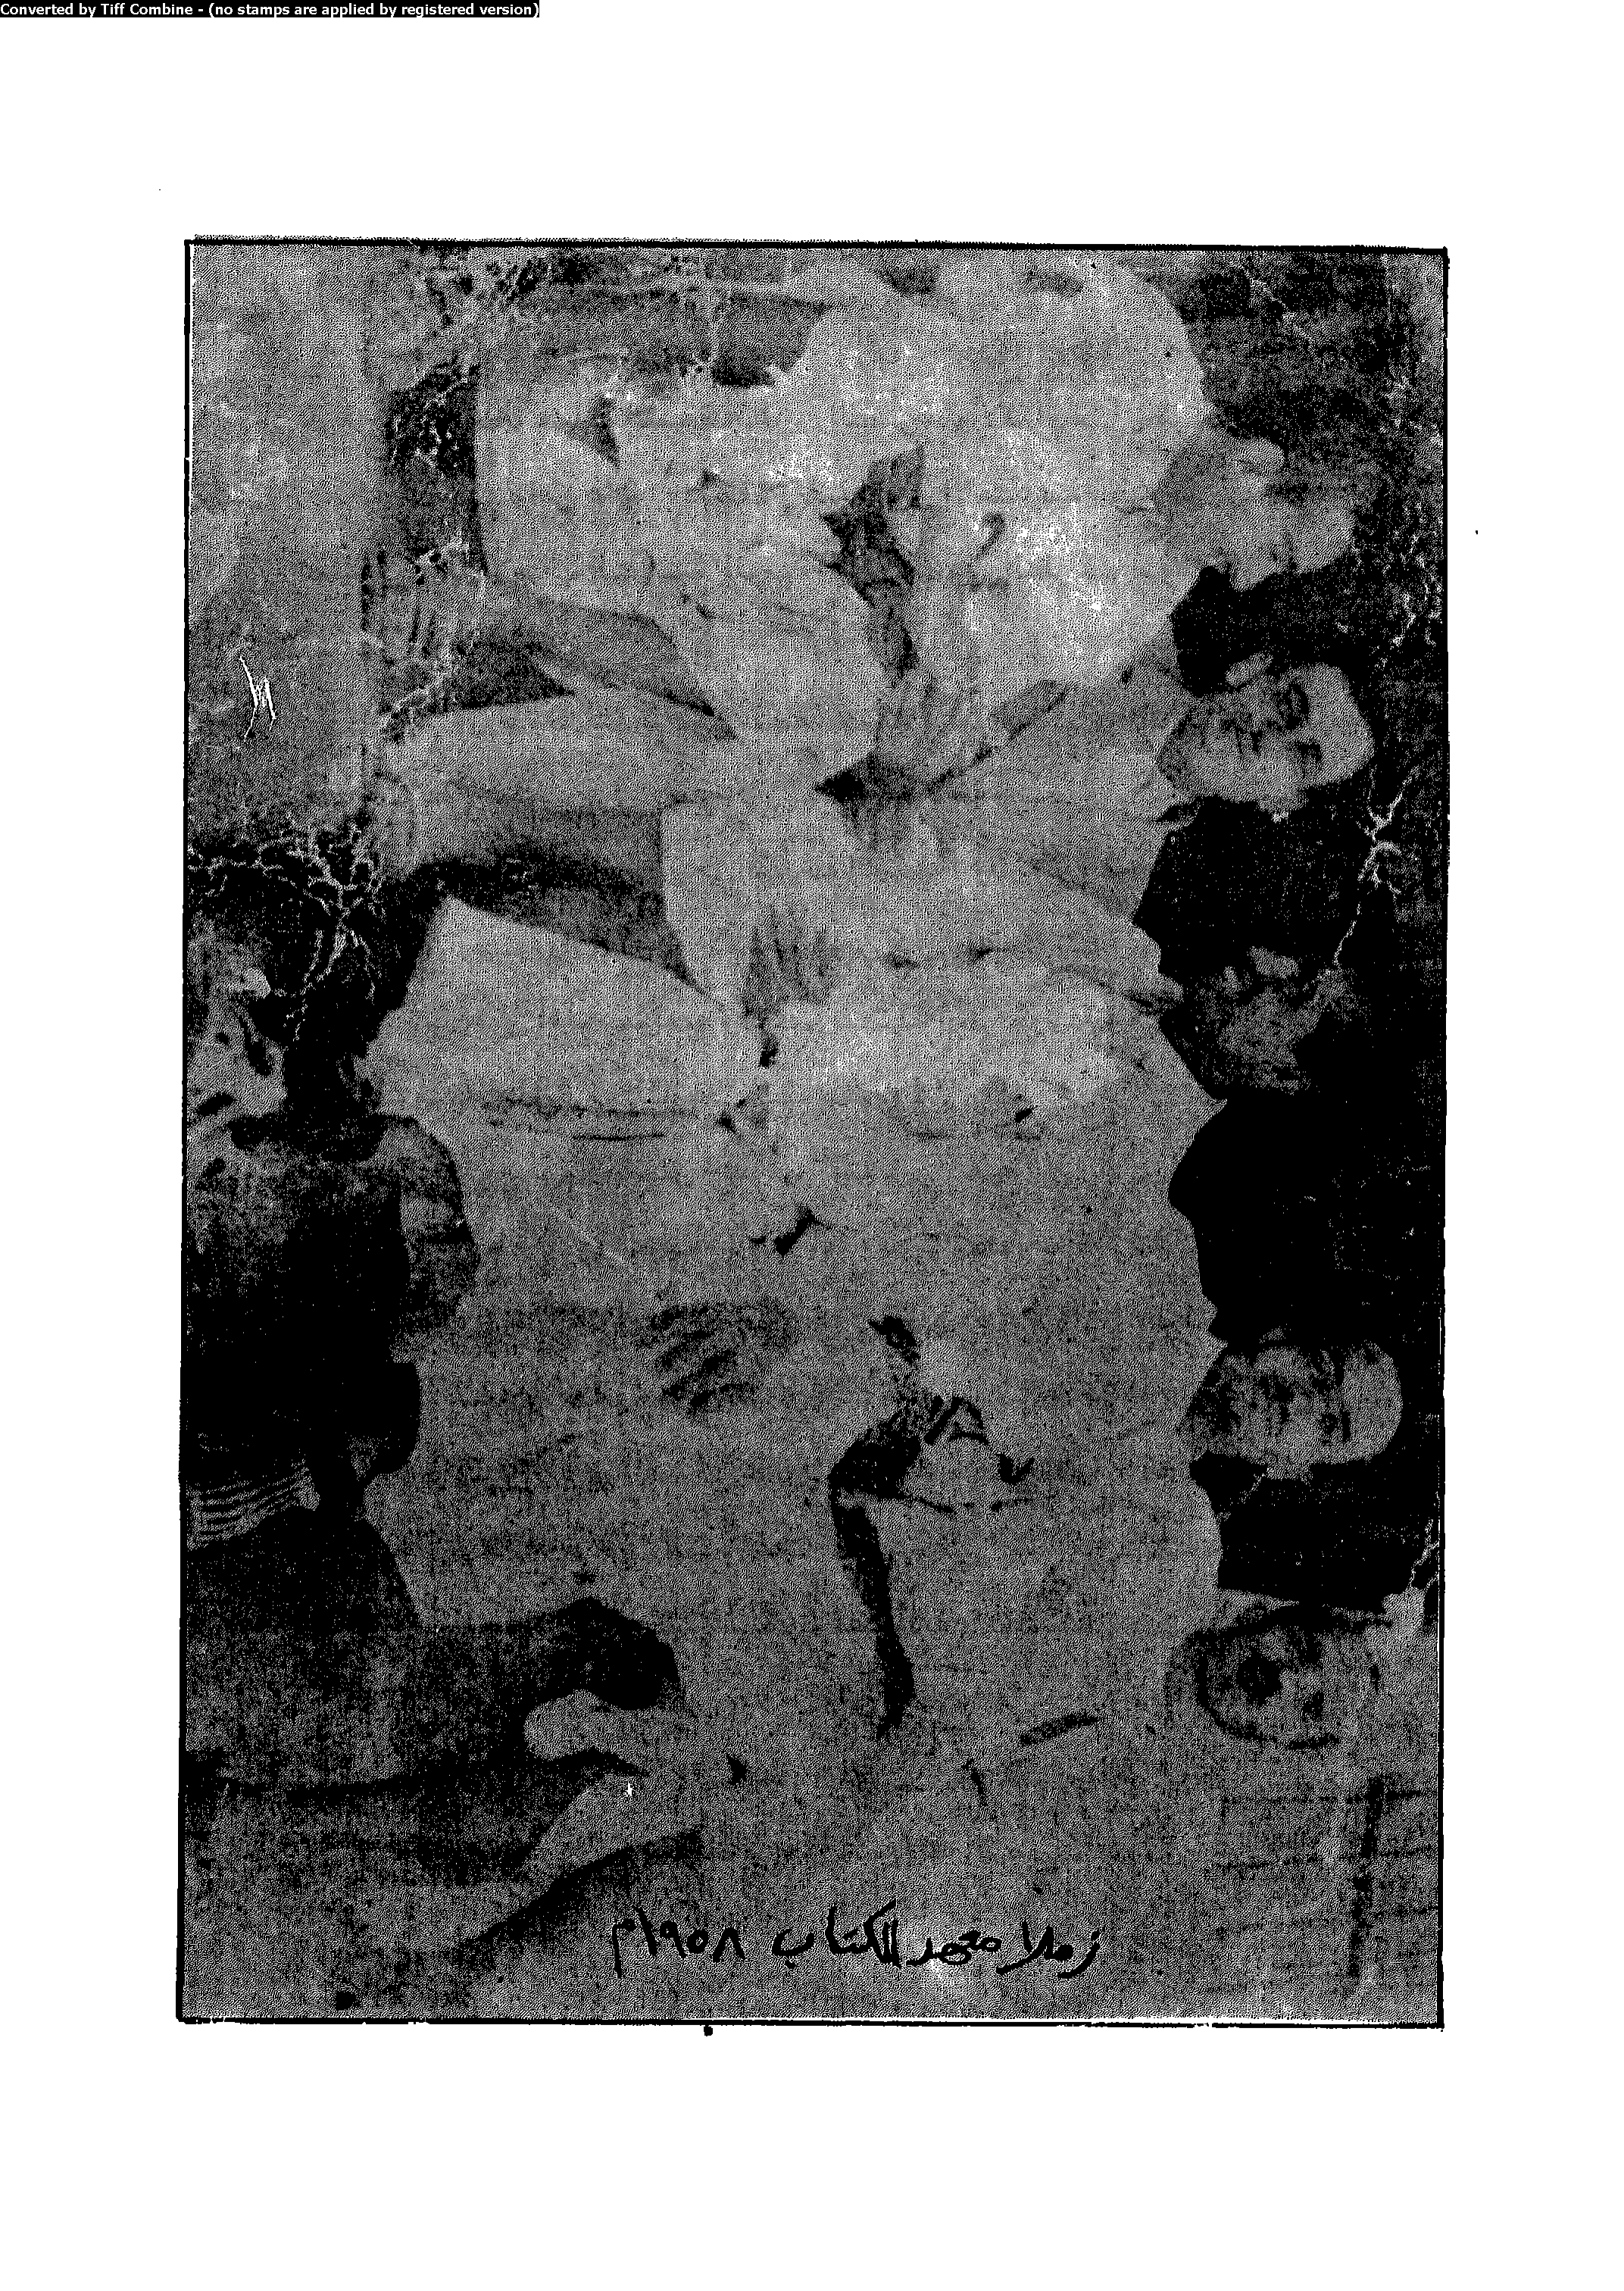 Converted by Tiff Combine - (no stamps are applied by registered version)
زملا متعهد الكتاب ١٩٥٨م